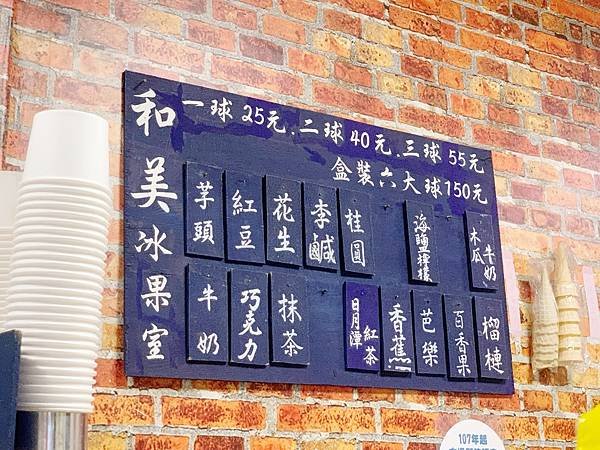 和美冰果室
一球25元.二球40元.三球55元
盒裝六大球150元
芋頭
紅豆
花生
李鹹
桂圓
海鹽檸檬
木瓜牛奶
牛奶
巧克力
抹茶
日月潭紅茶
香蕉
芭樂
百香果
榴槤
107年起